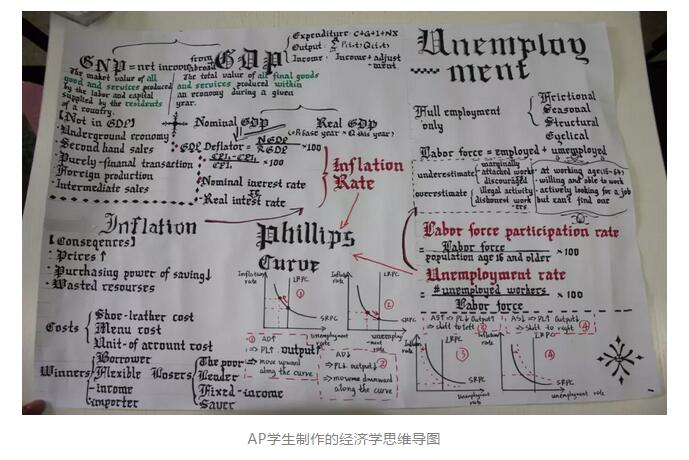 GNP = net income from abroad GDP
Expenditure C+G+I+NX
Output
Income · Income + adjustment
The market value of all good and services produced by the labor and capital supplied by the residents of a country.
The total value of all final goods and services produced within an economy during a given year.
[Not in GDP]
· Underground economy
· Second hand sales
· Purely-finanal transaction
· Foreign production
· Intermediate sales
Nominal GDP
Real GDP
GDP Deflator = NGDP / RGDP ×100
×100
Nominal inerest rate
Real intest rate
Inflation Rate
Unemployment
Full employment only
Frictional
Seasonal
Structural
Cyclical
Labor force = employed + unemployed
underestimate
marginally attached workers
discouraged
overestimate
illegal activity
dishonest workers
· at working age(16-64)
· willing and able to work
· actively looking for a job but can't find one
Labor force participation rate
= Labor force / population age 16 and older ×100
Unemployment rate
= #unemployed workers / Labor force ×100
Inflation
[Conseqences]
· Prices↑
· Purchasing power of saving↓
· Wasted resourses
Costs
Shoe-leather cost
Menu cost
Unit-of account cost
Winners
Borrower
Flexible-income
importer
Losers
The poor
Leader
Fixed-income
Saver
Phillips Curve
Inflation rate
LRPC
①
SRPC
unemployment rate
LRPC
②
SRPC
① AD↑
⇒ PL↑ output↑
⇒ move upward along the curve
AD↓
⇒ PL↓ output↓ ②
⇒ moveme downward along the curve
AS↑ ⇒ PL↓ output↑
⇒ shift to left ③
AS↓ ⇒ PL↑ output↓
⇒ shift to right ④
Inflation rate
LRPC
③
SRPC
Unemployment rate
LRPC
④
SRPC
unemployment rate
AP学生制作的经济学思维导图